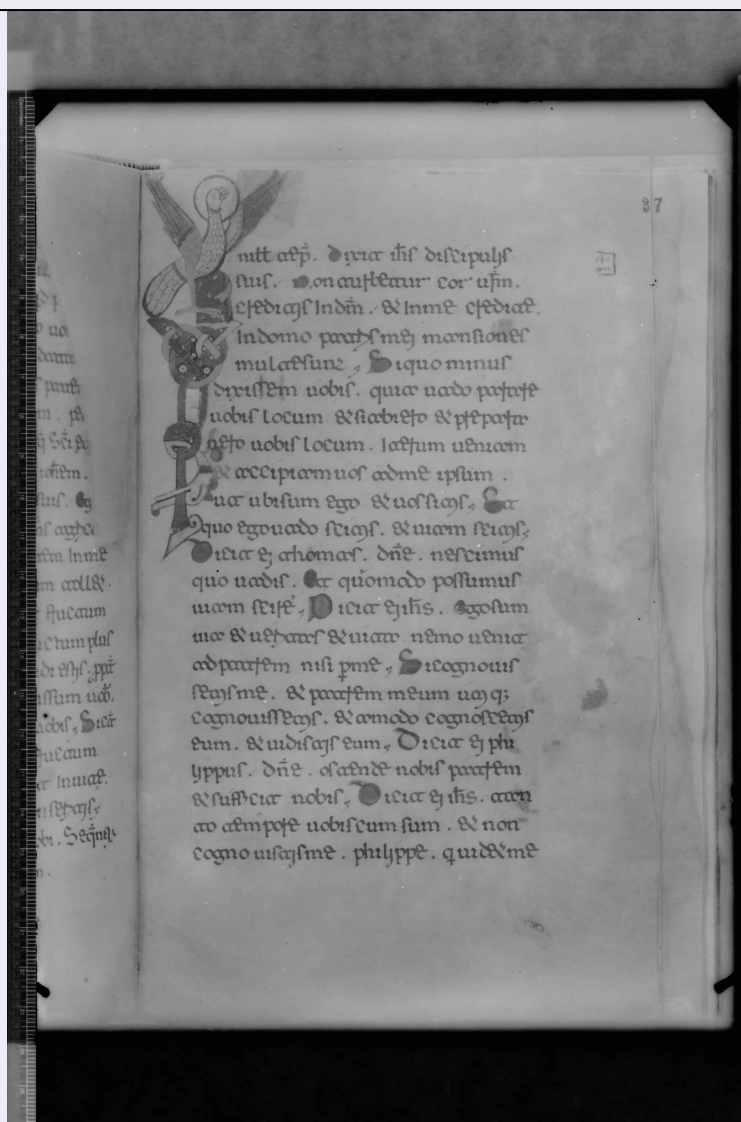 ructum
ctum plus
uobis, Sicut
fructum
37
In ill temp̄. Dixit ih̄s discipulis
suis. Non turbetur cor ur̄m.
creditis In dm̄. & In me credite.
In domo patris mei mansiones
multe sunt, Si quo minus
dixissem uobis. quia uado parare
uobis locum & si abiero & prepara
uero uobis locum. Iterum ueniam
& accipiam uos ad me ipsum.
Vt ubi sum ego & uos sitis, Et
quo ego uado scitis. & uiam scitis,
Dicit ei thomas. dn̄e. nescimus
quo uadis. Et quomodo possumus
uiam scire, Dicit ei ih̄s. Ego sum
uia & ueritas & uita nemo uenit
ad patrem nisi p̄ me, Si cognouis
setis me. & patrem meum utiq;
cognouissetis. & amodo cognoscetis
eum. & uidistis eum, Dicit ei phi
lippus. dn̄e. ostende nobis patrem
& sufficit nobis, Dicit ei ih̄s. tan
to tempore uobiscum sum. & non
cognouistis me. philippe. qui uidet me